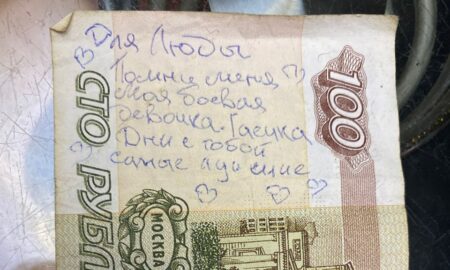 Для Любы
Помни меня
моя боевая
девочка.
Дни с тобой
самые лучшие
СТО РУБЛ
100
МОСКВА